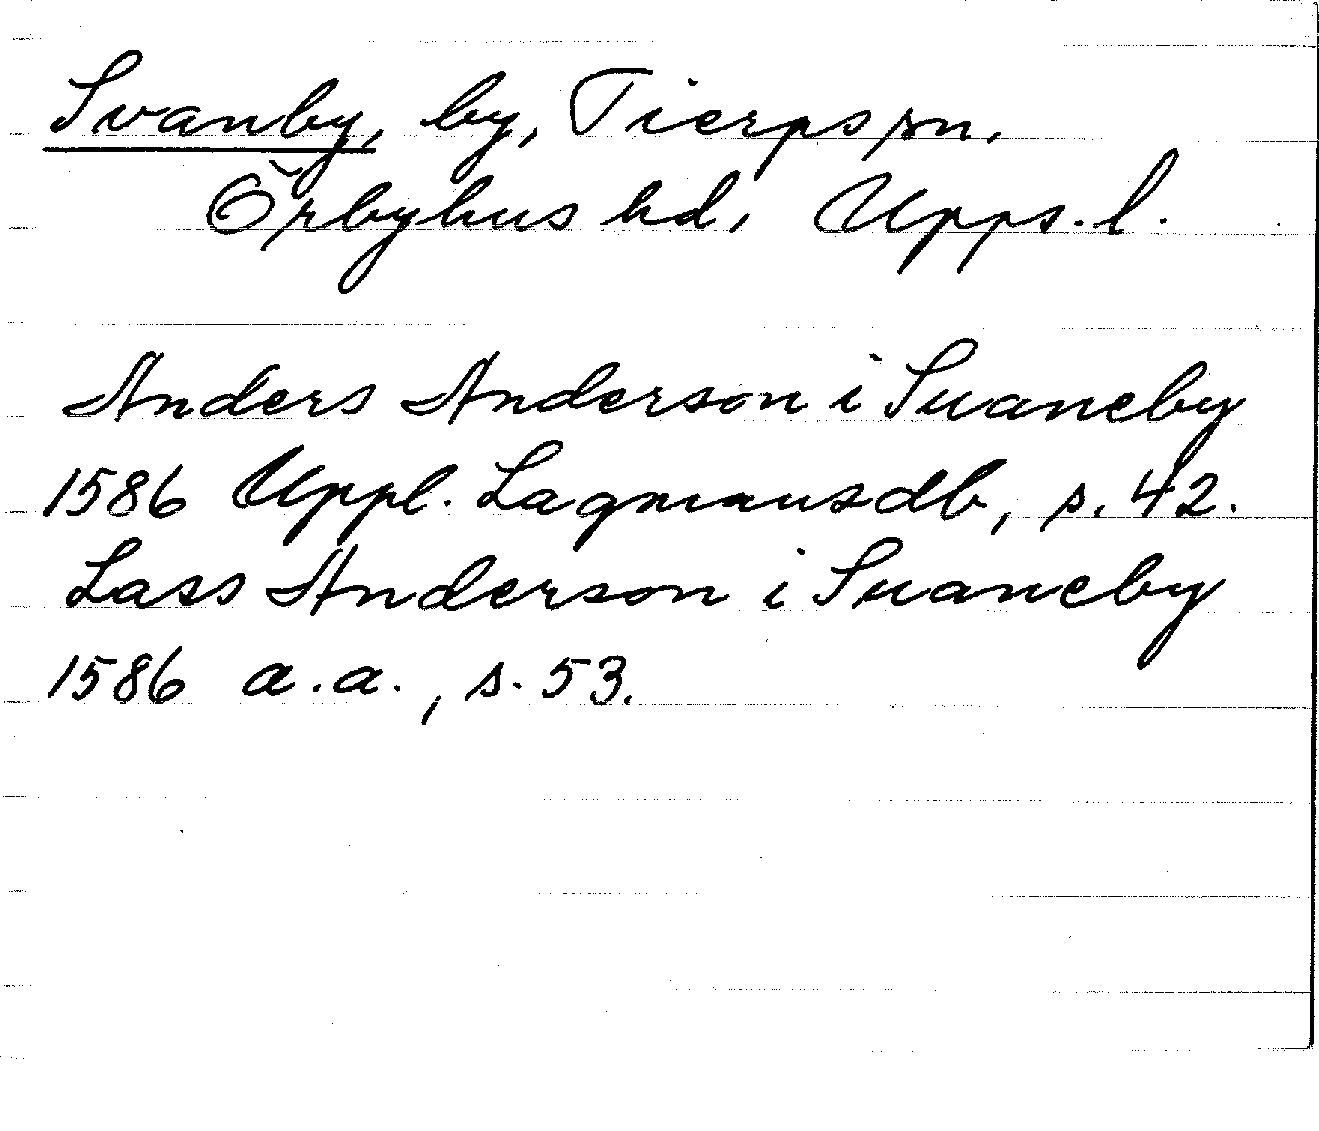 Svanby, by, Tierps sn.
Örbyhus hd, Upps. l.
Anders Anderson i Suaneby
1586 Uppl. Lagmansdb, s. 42.
Lass Anderson i Suaneby
1586 a.a., s. 53.